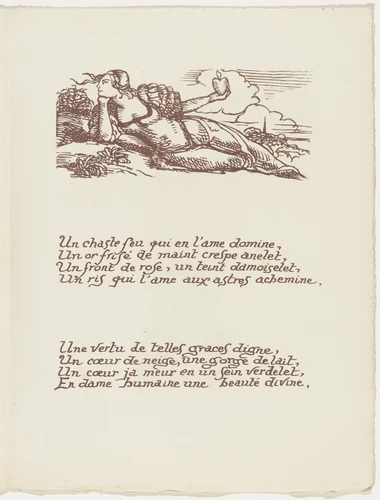 Un chaste feu qui en l'ame domine,
Un or frisé de maint crespe anelet,
Un front de rose, un teint damoiselet,
Un ris qui l'ame aux astres achemine,
Une vertu de telles graces digne,
Un cœur de neige, une gorge de lait,
Un cœur ja meur en un sein verdelet,
En dame humaine une beauté divine,